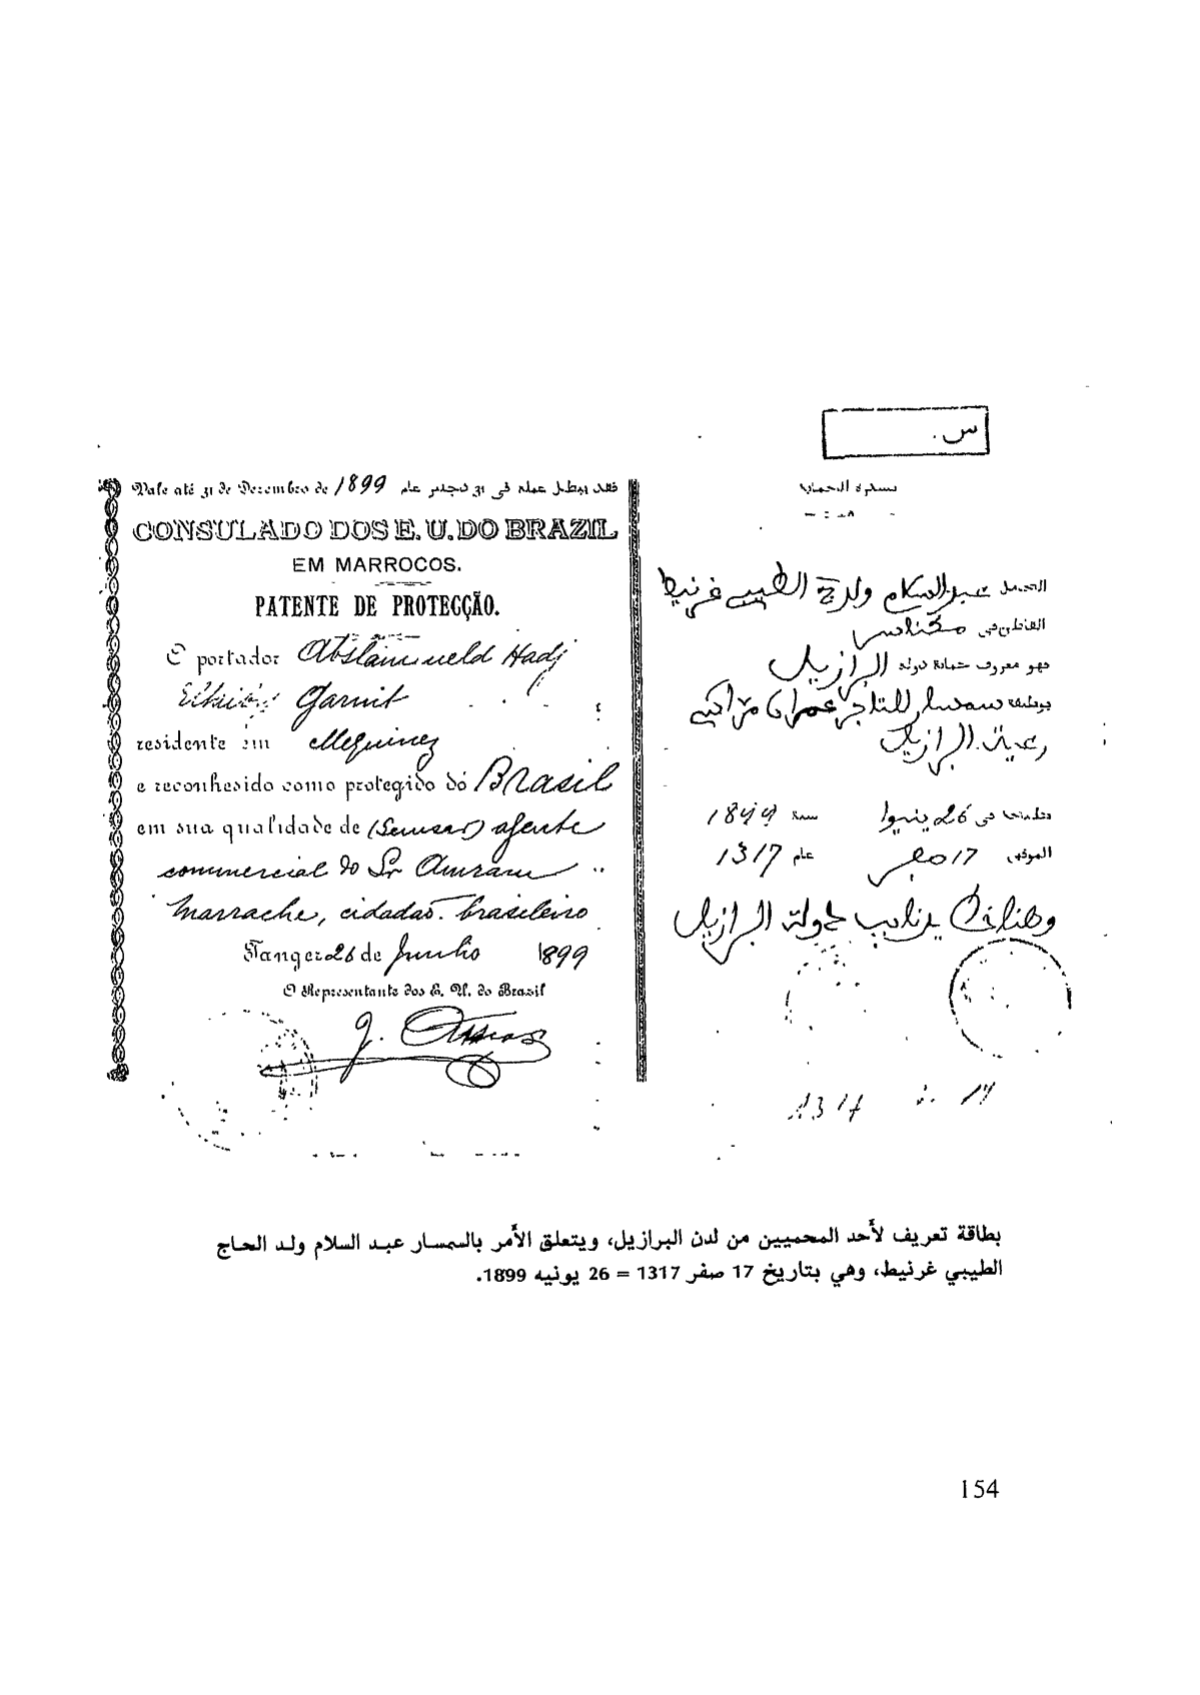 س.
Vale até 31 de Dezembro de 1899 فقد يبطل عمله في 31 دجنبر عام
CONSULADO DOS E. U. DO BRAZIL
EM MARROCOS.
PATENTE DE PROTECÇÃO.
O portador Abslam ueld Hadj
Garnit
residente em Mequinez
e reconhesido como protegido do Brasil
em sua qualidade de (Semsar) agente
commercial do Sr Amram
Marrache, cidadão brasileiro
Tanger 26 de Junho 1899
O Representante dos E. U. do Brasil
تسكرة الحماية
الحامل عبد السلام ولد ج الطيبي غرنيط
القاطن في مكناس
فهو معروف حماية دولة البرازيل
بوظيف سمسار للتاجر عمران مراكشي
رعية البرازيل
طنجة في 26 ينيوا سنة 1899
الموفق 17 صفر عام 1317
نايب دولة البرازيل
17
1317
بطاقة تعريف لأحد المحميين من لدن البرازيل، ويتعلق الأمر بالسمسار عبد السلام ولد الحاج
الطيبي غرنيط، وهي بتاريخ 17 صفر 1317 = 26 يونيه 1899.
154